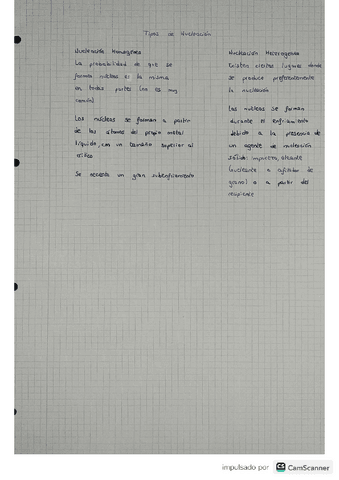 Tipos de Nucleación
Nucleación Homogénea
La probabilidad de que se
formen núcleos es la misma
en todas partes (no es muy
común)
Los núcleos se forman a partir
de los átomos del propio metal
líquido, con un tamaño superior al
crítico
Se necesita un gran subenfriamiento
Nucleación Heterogénea
Existen ciertos lugares donde
se produce preferentemente
la nucleación
Los núcleos se forman
durante el enfriamiento
debido a la presencia de
un agente de nucleación
sólido: impureza, aleante
(nucleante o afinador de
grano) o a partir del
recipiente
impulsado por CS CamScanner